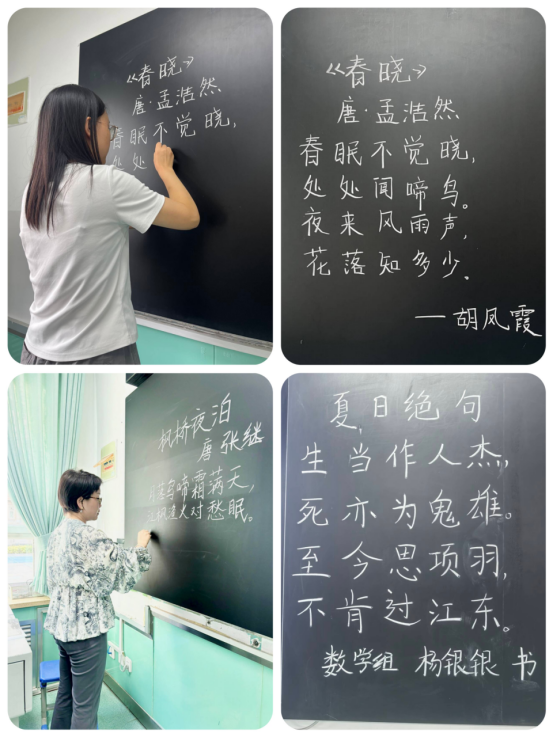 《春晓》
唐·孟浩然
春眠不觉晓，
处处
《春晓》
唐·孟浩然
春眠不觉晓，
处处闻啼鸟。
夜来风雨声，
花落知多少。
—胡凤霞
枫桥夜泊
唐 张继
月落乌啼霜满天，
江枫渔火对愁眠。
夏日绝句
生当作人杰，
死亦为鬼雄。
至今思项羽，
不肯过江东。
数学组 杨银银 书